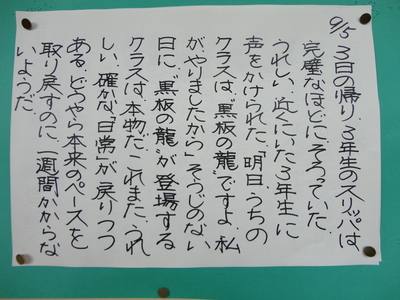 9/5 3日の帰り、3年生のスリッパは
完璧なほどにそろっていた。
うれしい。近くにいた3年生に
声をかけられた。「明日、うちの
クラスは、〝黒板の龍〟ですよ、私
がやりましたから」そうじのない
日に、〝黒板の龍〟が登場する
クラスは、本物だ。これまた、うれ
しい。確かな〝日常〟が戻りつつ
ある。どうやら本来のペースを
取り戻すのに、一週間かからな
いようだ。